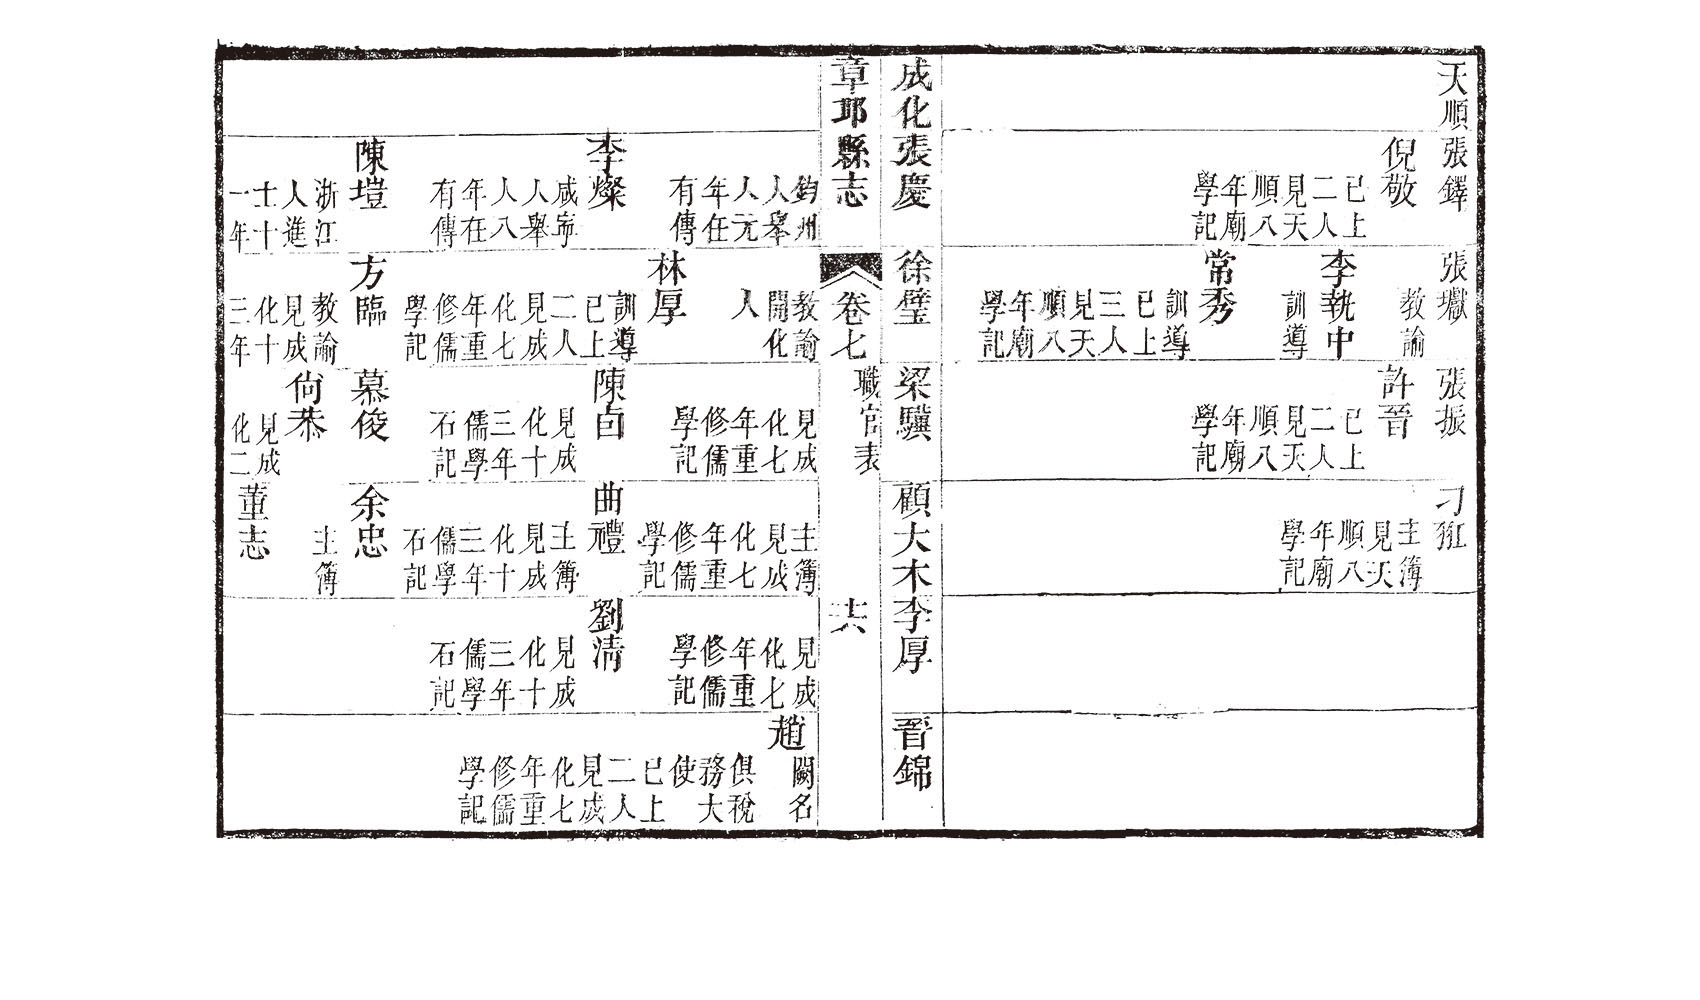 天順
張鐸
倪敬 已上二人見天順八年廟學記
張瓛 教諭
李執中 訓導
常秀 訓導已上三人見天順八年廟學記
張振
許晉 已上二人見天順八年廟學記
刁 主簿見天順八年廟學記
成化
張慶 鈞州人舉人元年任有傳
李燦 咸寧人舉人八年在有傳
陳塏 浙江人進士十一年
徐璧 教諭開化人
林厚 訓導已上二人見成化七年重修儒學記
方臨 教諭見成化十三年
梁驥 見成化七年重修儒學記
陳卣 見成化十三年儒學石記
慕俊
尙恭 見成化二
顧大木 主簿見成化七年重修儒學記
曲禮 主簿見成化十三年儒學石記
余忠 主簿
董志
李厚 見成化七年重修儒學記
劉清 見成化十三年儒學石記
晉錦
趙 闕名俱稅務大使已上二人見成化七年重修儒學記
章邱縣志 卷七 職官表 十六